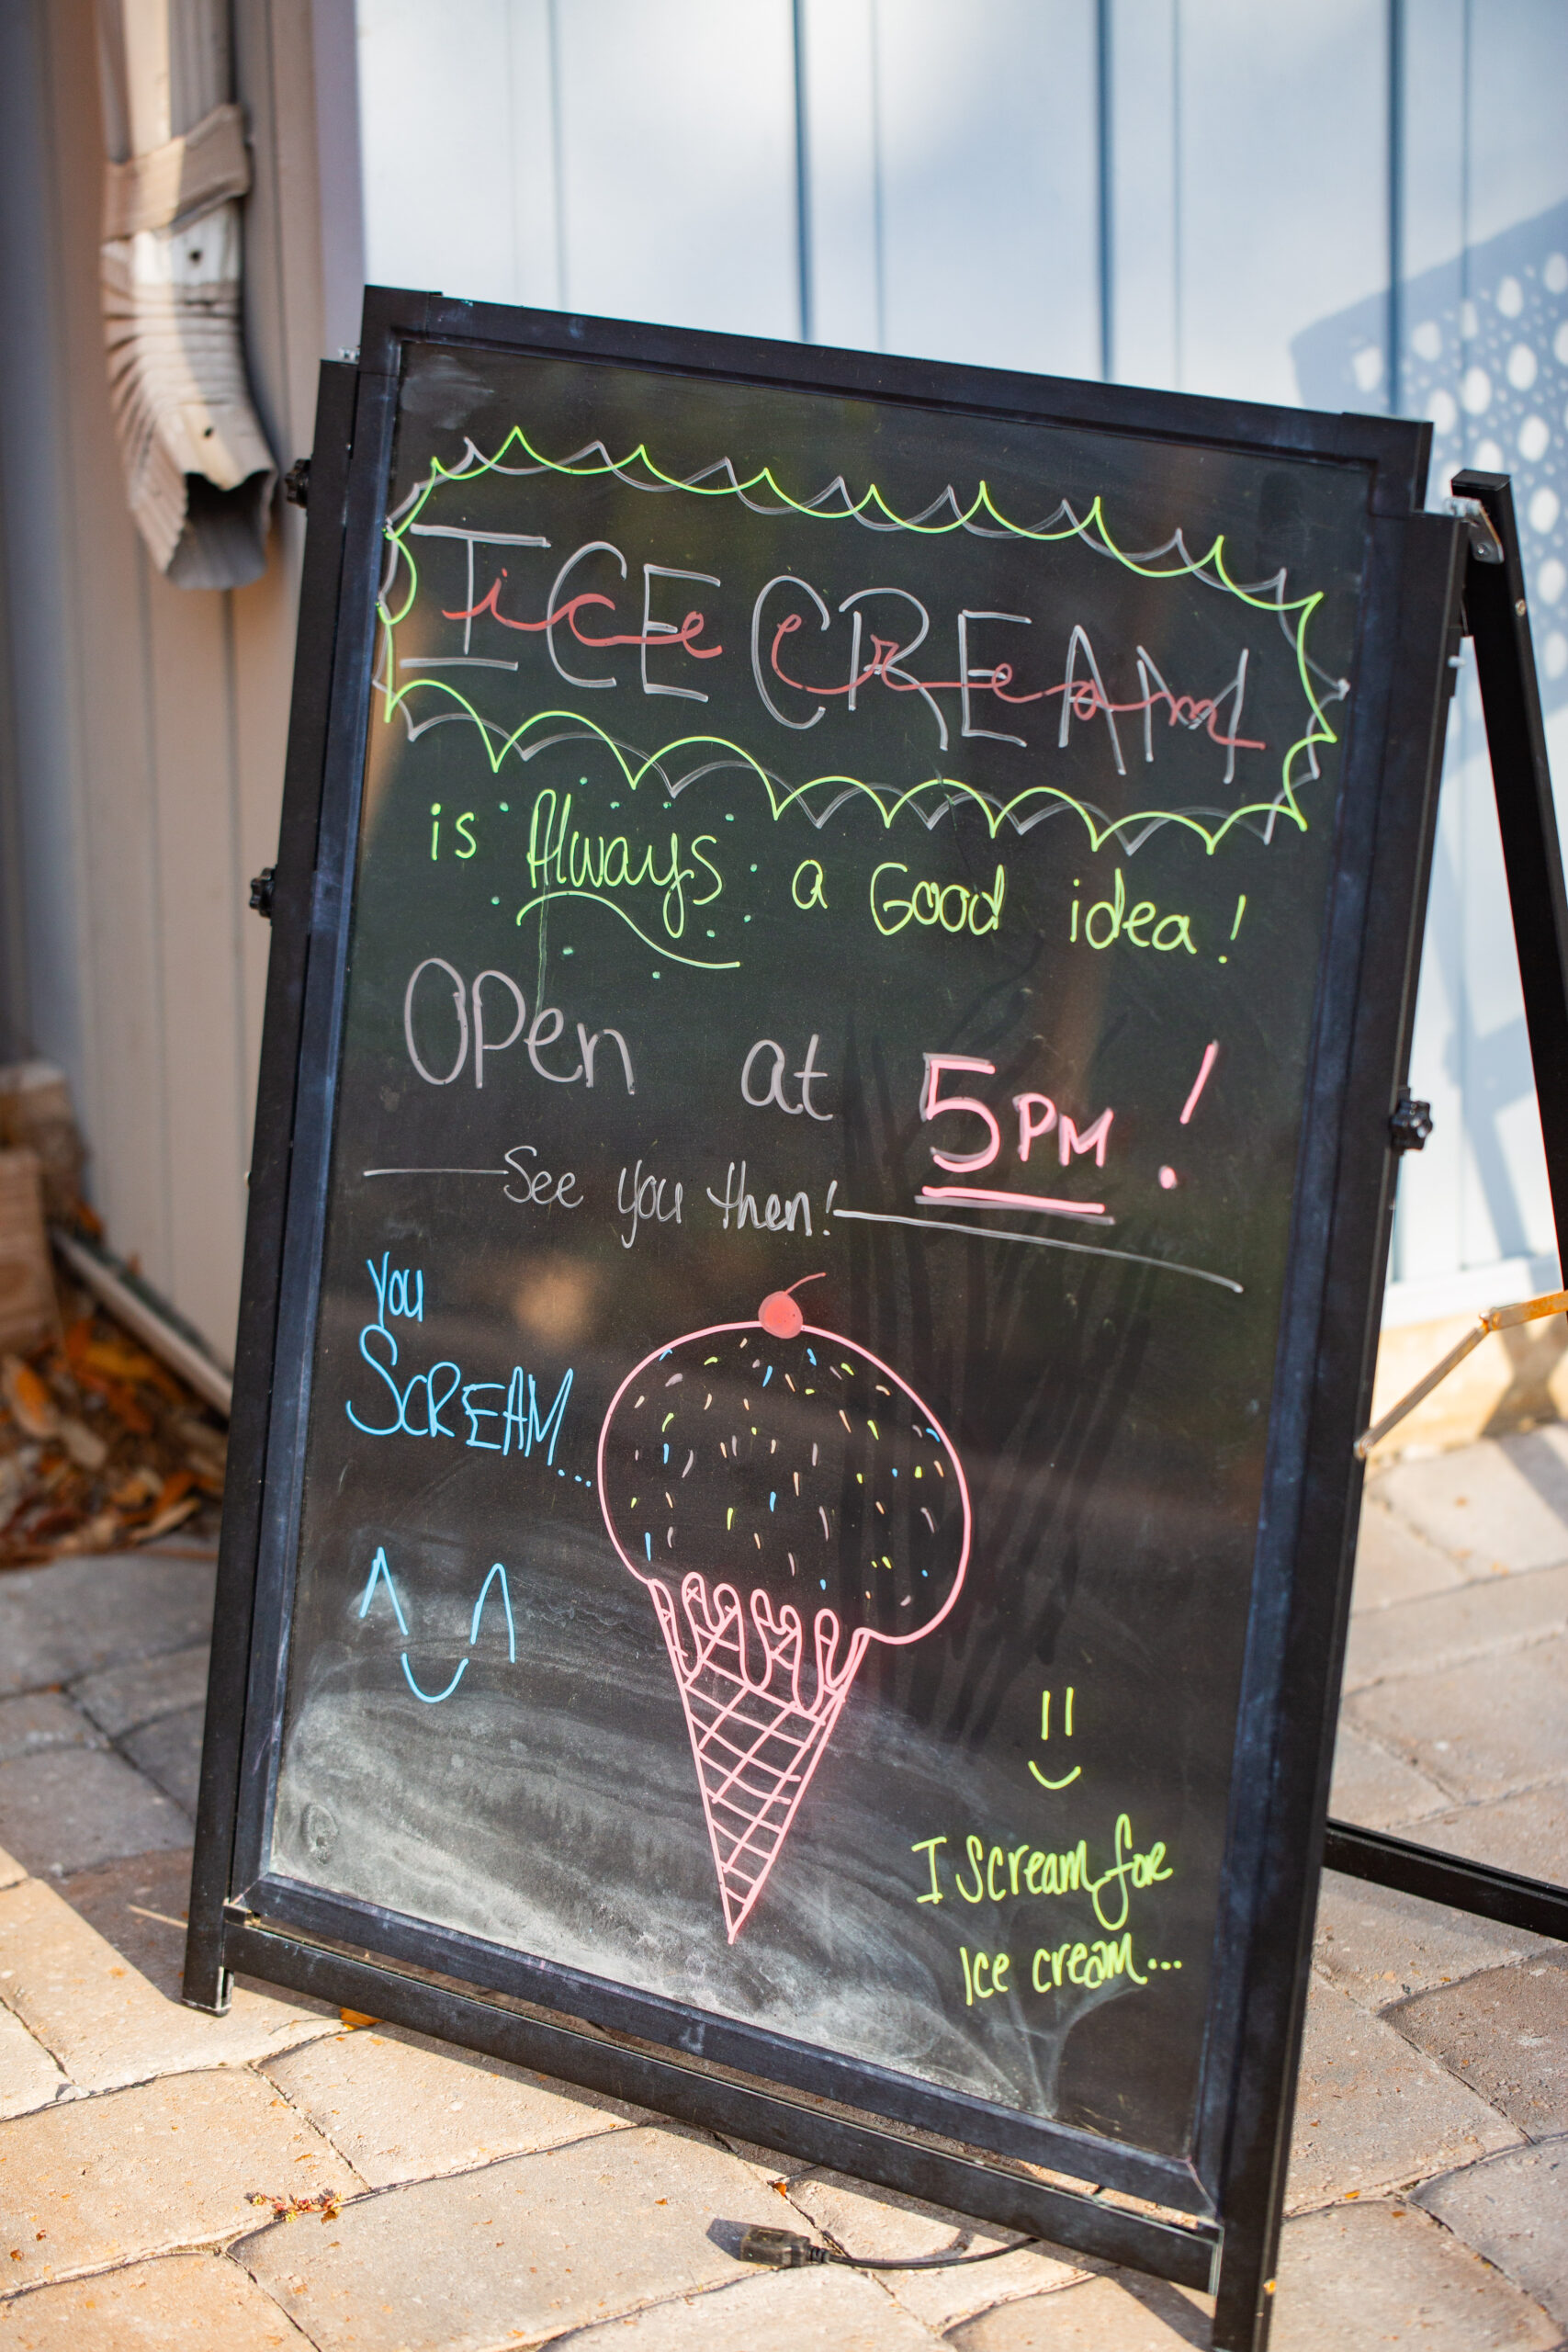 ICE CREAM
ice cream
is Always a Good idea!
OPen at 5PM!
See you then!
You
SCREAM...
I Scream for
Ice cream...